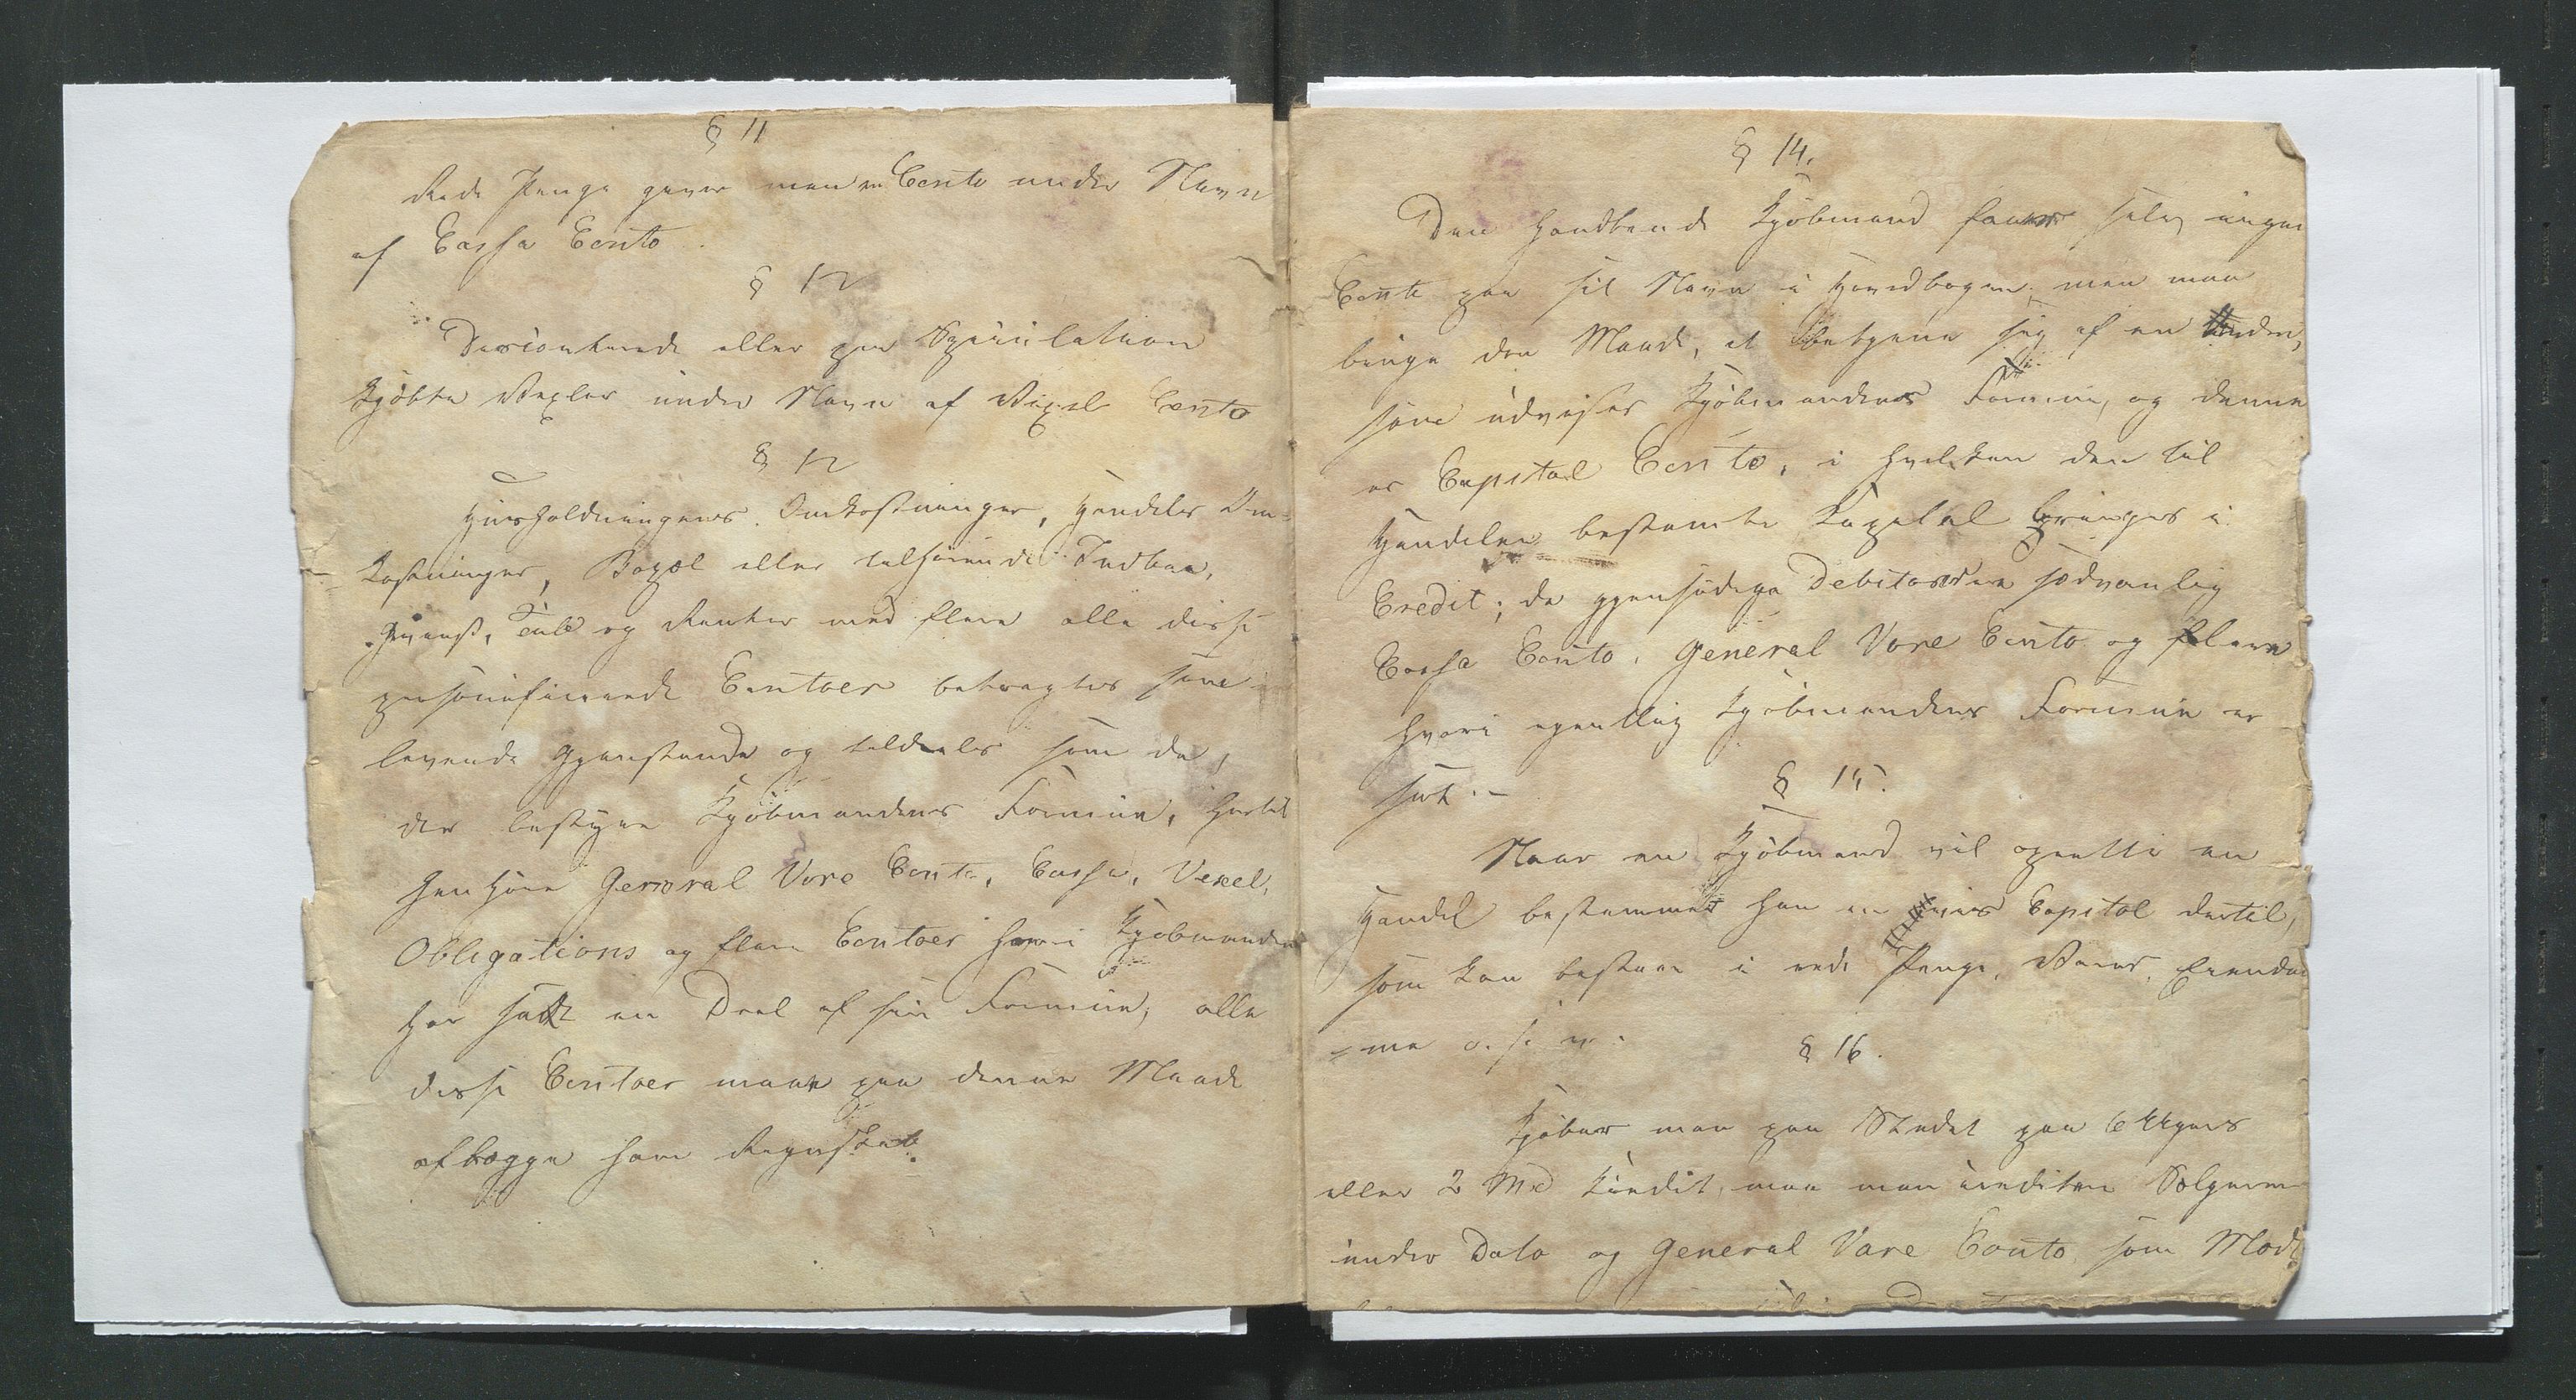 § 11
Rede Penge giver man en Conto under Navn
af Cassa Conto.
§ 12
Disconterede eller paa Speculation
kjöbte Vexler under Navn af Vexel Conto
§ 12
Huusholdningens Omkostninger, Handels Om=
kostninger, Bopæl eller tilhörende Indboe,
Gevinst, Tab og Renter med flere alle disse
personificerede Contoer betragtes som
levende Gjenstande og tildeeles som de,
der bestyre Kjöbmandens Formue, hertil
henhöre General Vare Conto, Cassa, Vexel,
Obligations og flere Contoer hvori Kjöbmanden
har sadt en Deel af sin Formue, alle
disse Contoer maae paa denne Maade
aflægge ham Regnskab.
§ 14.
Den handlende Kjöbmand faaer selv ingen
Conto paa sit Navn i Hovedbogen, men maa
bruge den Maade, at betjene sig af en anden,
som udviser Kjöbmandens Formue, og denne
er Capital Conto, i hvilken den til
Handelen bestemte Kapital bringes i
Credit; de gjensidige Debitorer ere sædvanlig
Cassa Conto, General Vare Conto og flere
hvori egentlig Kjöbmandens Formue er
sat.-
§ 15.
Naar en Kjöbmand vil oprette en
Handel bestemmer han en vis Capital dertil,
som kan bestaae i rede Penge, Varer, Eiendom
=me o. s. v.
§ 16.
Kjöber man paa Stedet paa 6 Ugers
eller 2 Md Kredit, maa man creditere Sælgeren
under Dato og General Vare Conto som Mod